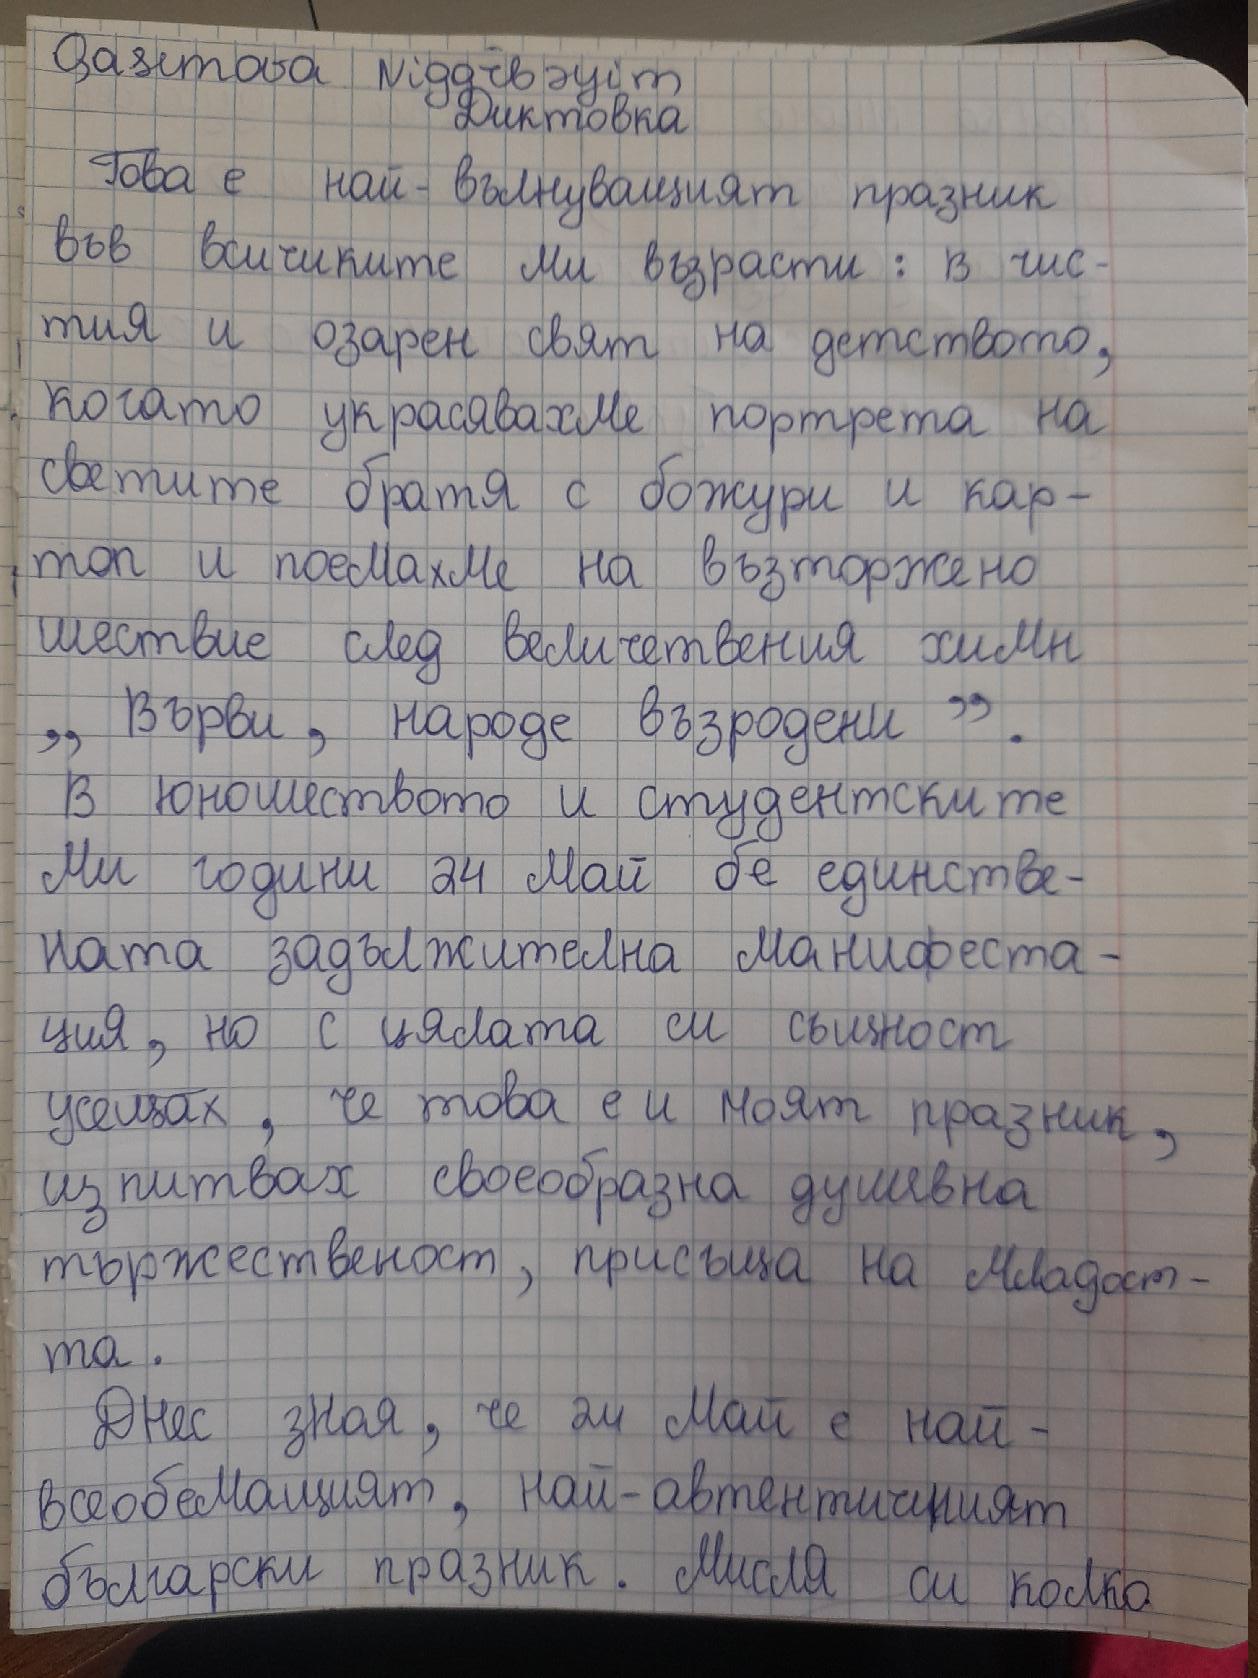 Диктовка
Това е най-вълнуващият празник
във всичиките ми възрасти: в чис-
тия и озарен свят на детството,
когато украсявахме портрета на
светите братя с божури и кар-
топ и поемахме на възторжено
шествие след величетвения химн
„Върви, народе възродени”.
В юношеството и студентските
ми години 24 май бе единстве-
ната задължителна манифеста-
ция, но с цялата си същност
усещах, че това е и моят празник,
изпитвах своеобразна душевна
тържественост, присъща на младост-
та.
Днес зная, че 24 май е най-
всеобемащият, най-автентичният
български празник. Мисля си колко